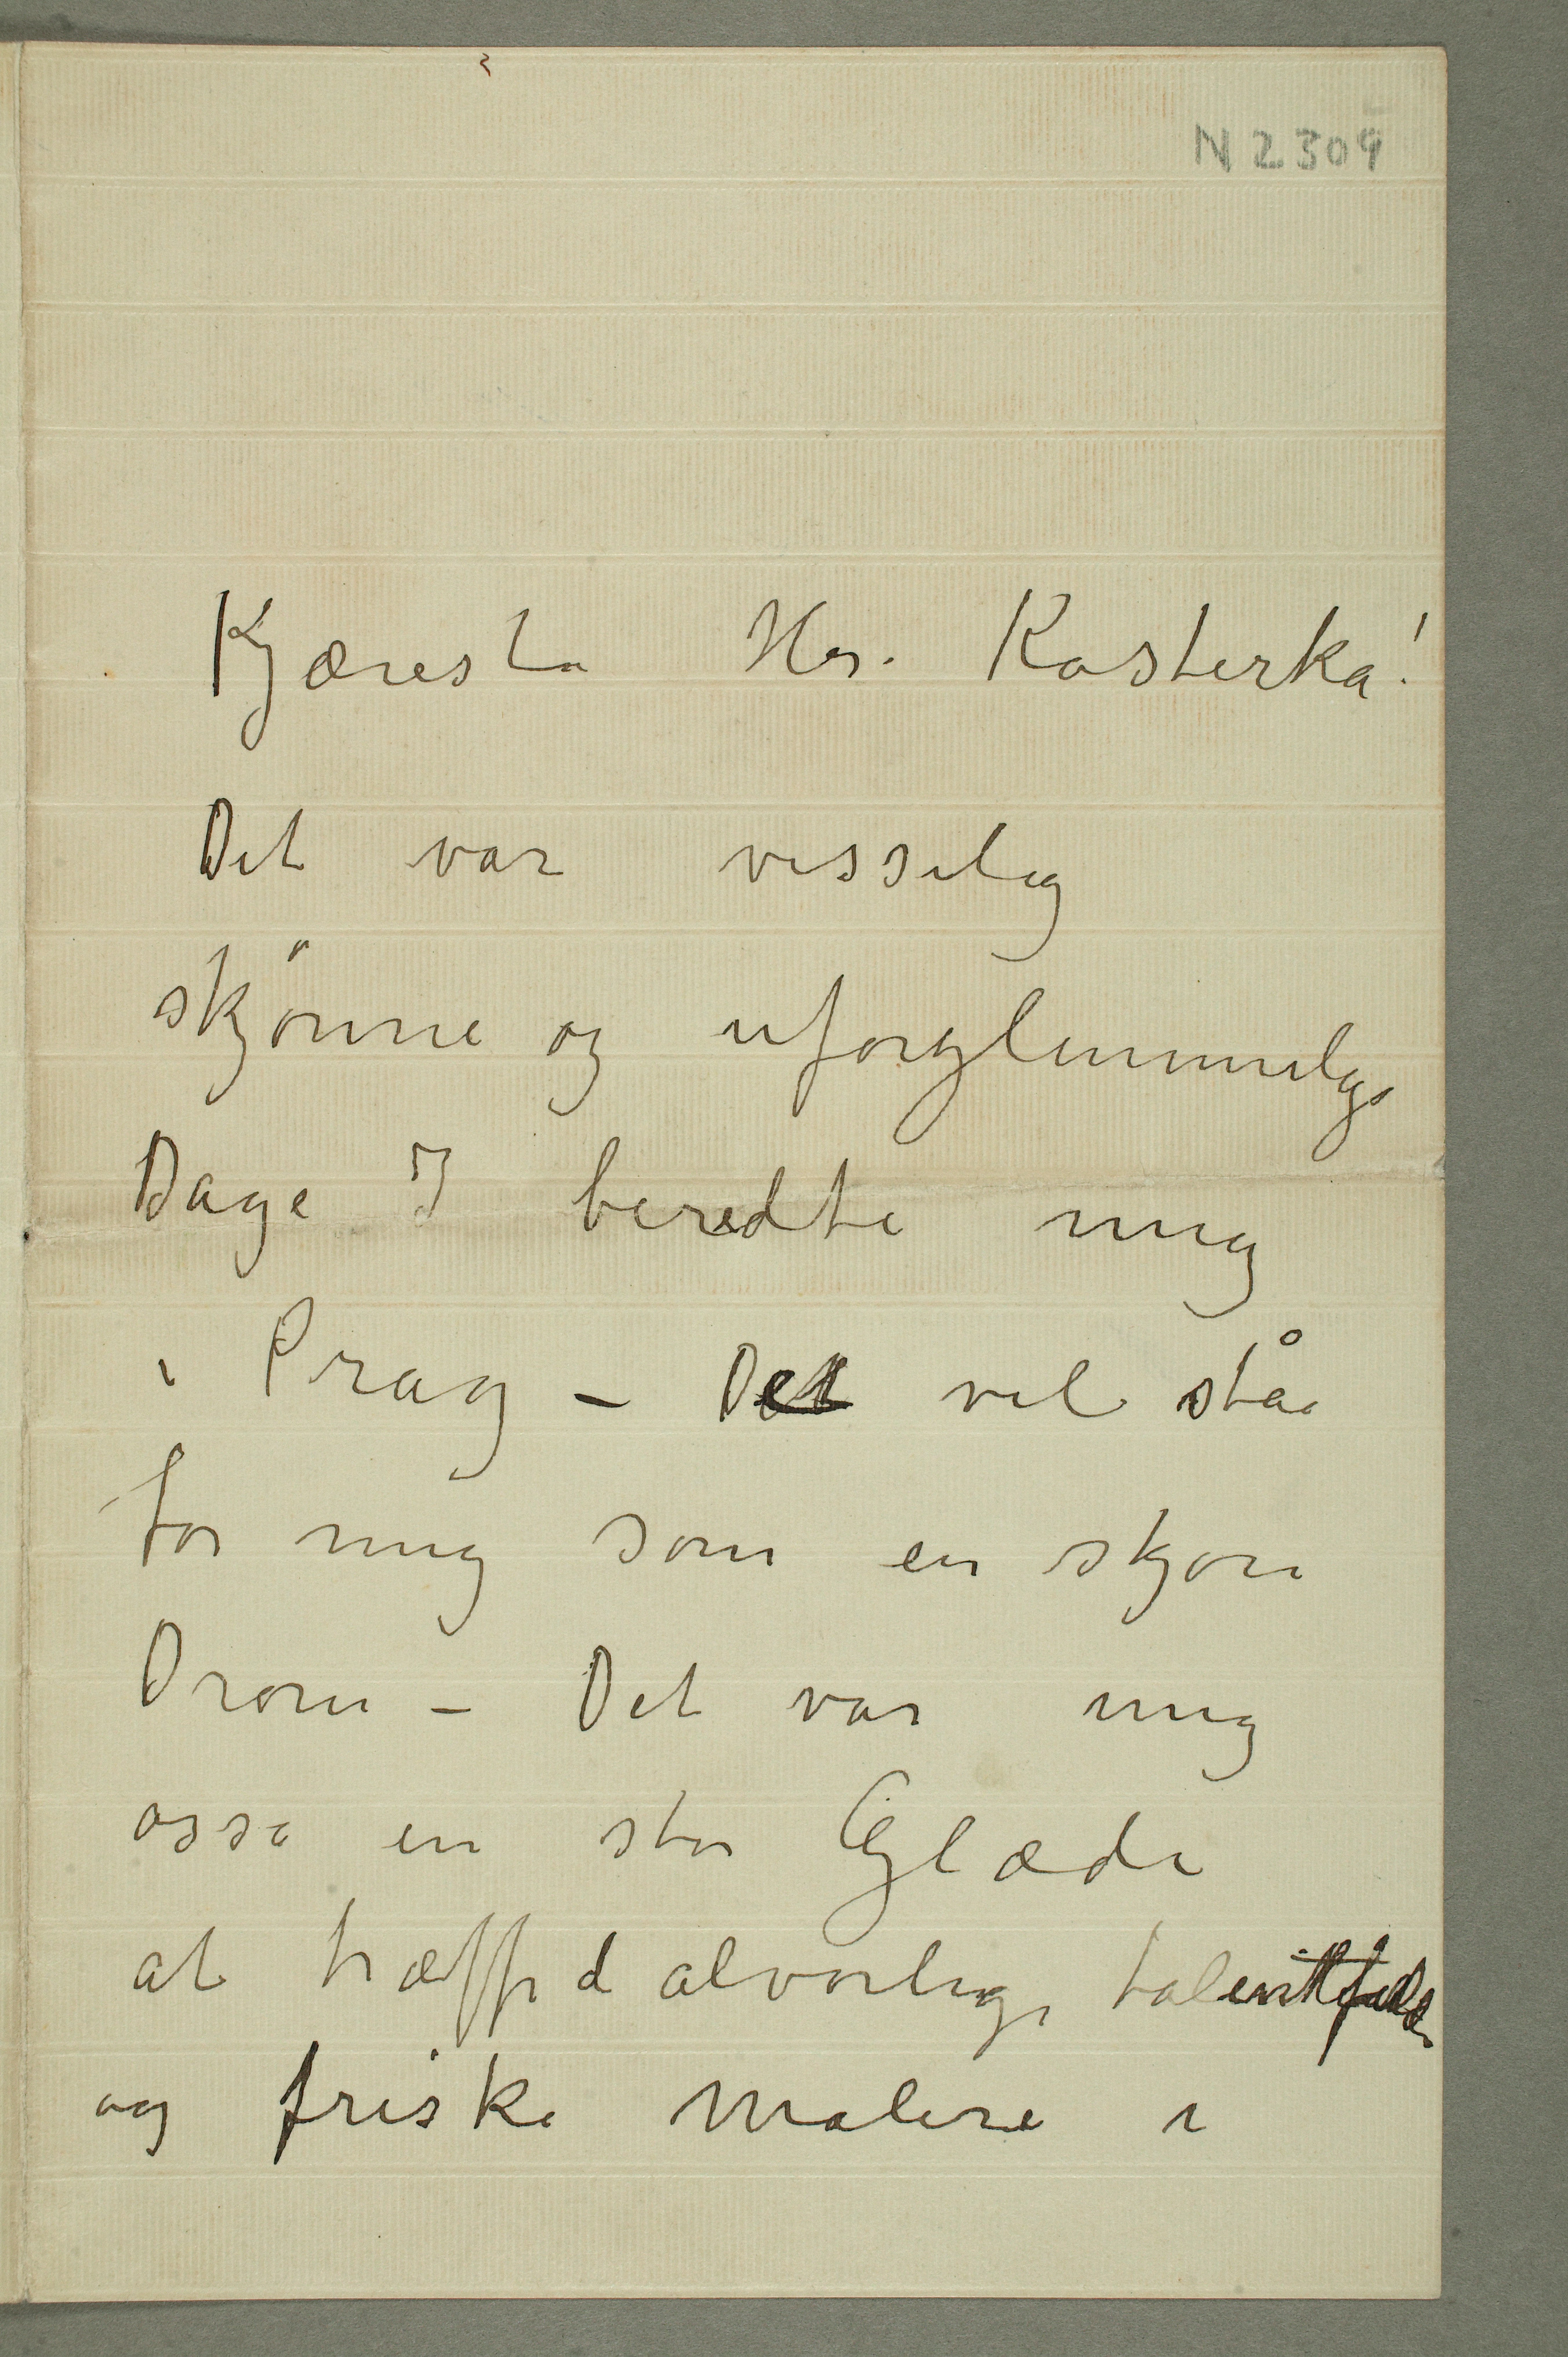 N 2309
Kjæreste Hr. Kosterka!
Det var visselig
skjønne og uforglemmelige
Dage I beredte mig
i Prag – Det vil stå
for mig som en skjøn
Drøm – Det var mig
osså en stor Glæde
at træffe d alvorlige talentfulde
og friske Malere i